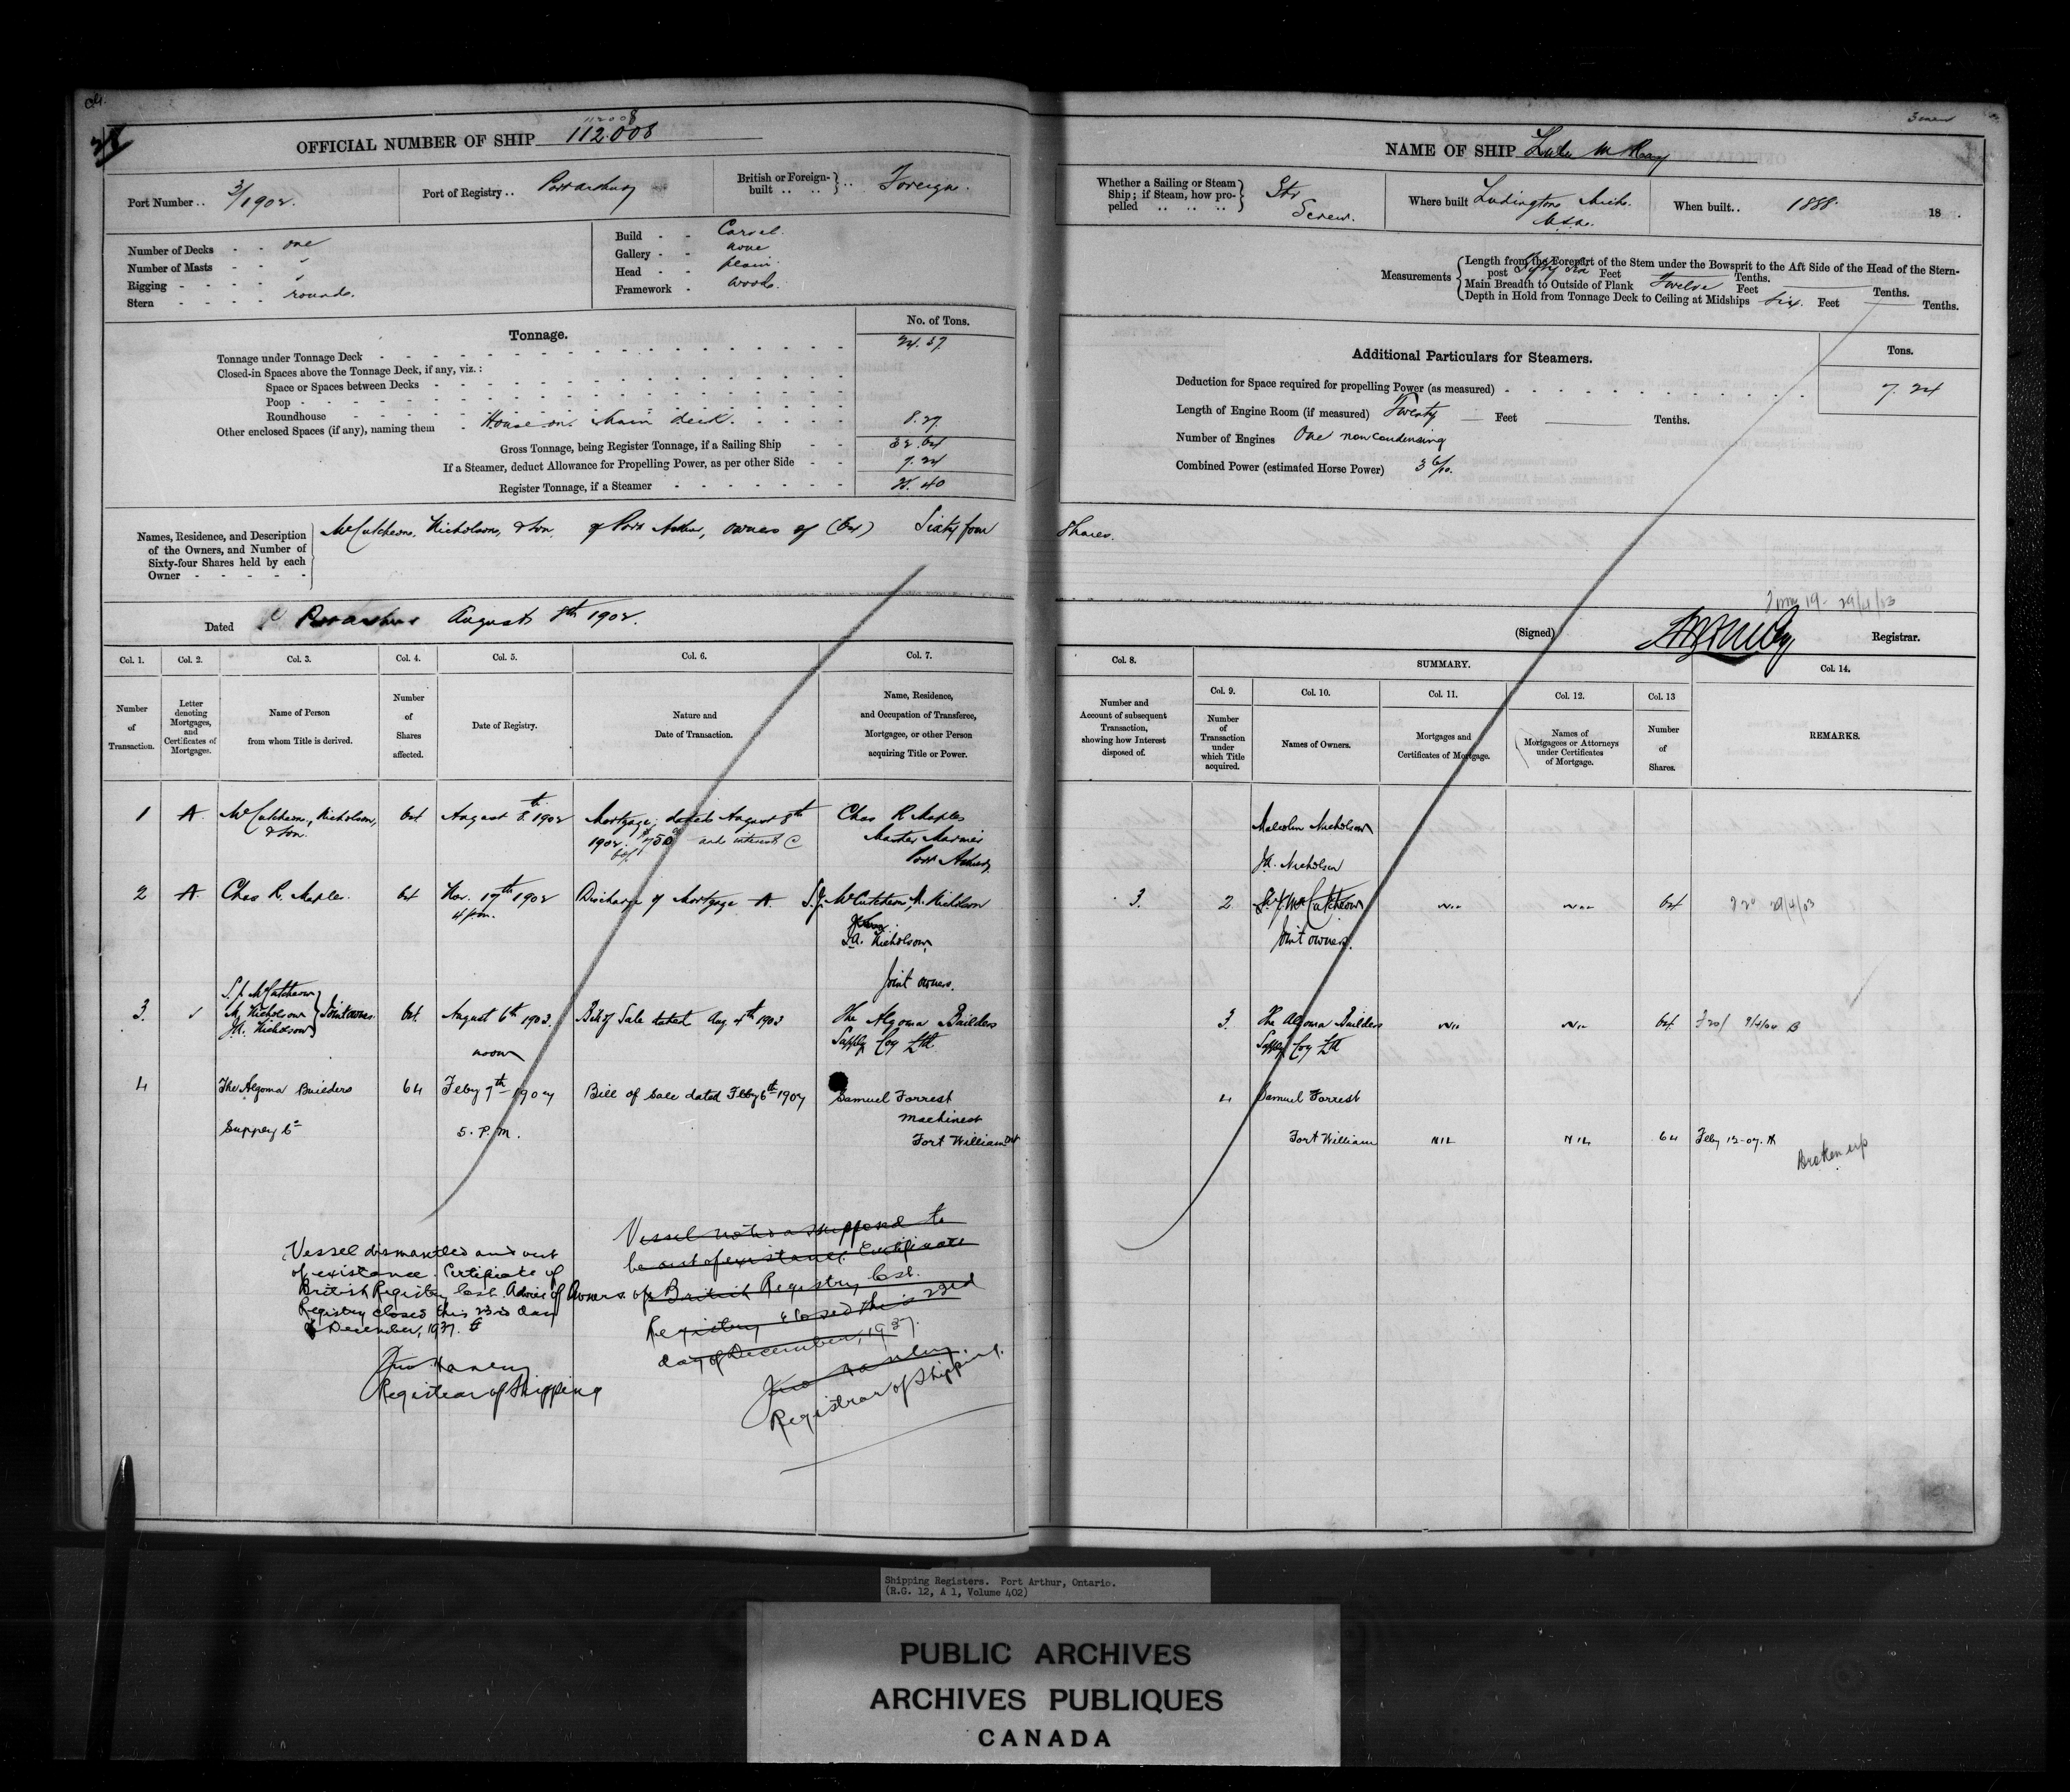 28
112008
OFFICIAL NUMBER OF SHIP 112.008
Port Number .. 3/1902.
Port of Registry .. Port Arthur
British or Foreign-built .. .. Foreign.
Number of Decks - - one
Number of Masts - - "
Rigging - - - - "
Stern - - - - rounds.
Build - - Carvel.
Gallery - - none
Head - - plain
Framework - wood.
Tonnage.
No. of Tons.
Tonnage under Tonnage Deck 24.37
Closed-in Spaces above the Tonnage Deck, if any, viz. :
Space or Spaces between Decks
Poop
Roundhouse
Other enclosed Spaces (if any), naming them - House on main deck. 8.27
Gross Tonnage, being Register Tonnage, if a Sailing Ship 32.64
If a Steamer, deduct Allowance for Propelling Power, as per other Side 7.24
Register Tonnage, if a Steamer 25.40
Names, Residence, and Description
of the Owners, and Number of
Sixty-four Shares held by each
Owner - - - - -
McCutcheon, Nicholson, & Son, of Port Arthur, owners of (64) Sixty four
Dated Port Arthur August 8th 1902.
Col. 1. Col. 2. Col. 3. Col. 4. Col. 5. Col. 6. Col. 7.
Number of Transaction.
Letter denoting Mortgages, and Certificates of Mortgages.
Name of Person from whom Title is derived.
Number of Shares affected.
Date of Registry.
Nature and Date of Transaction.
Name, Residence, and Occupation of Transferee, Mortgagee, or other Person acquiring Title or Power.
1 A McCutcheon, Nicholson, 64 August 8th 1902 Mortgage, dated August 8th Chas R Maples
& Son. 1902. $750 and interest @ Master Mariner
Port Arthur
2 A Chas R. Maples. 64 Nov. 17th 1902 Discharge of Mortgage A. S.J. McCutcheon, M. Nicholson
4 pm.
J.A. Nicholson,
Joint owners.
S.J. McCutcheon
3. M. Nicholson Joint owners 64. August 6th 1903. Bill of Sale dated Aug 4th 1903 The Algoma Builders
J.A. Nicholson noon Supply Coy Ltd.
4 The Algoma Builders 64 Feby 7th 1907 Bill of Sale dated Feby 6th 1907 Samuel Forrest
Supply Co 5. P.M. machinest
Fort William Ont
Vessel dismantled and out
of existance. Certificate of
British Registry lost. Advice of Owners.
Registry closed this 23rd day
of December, 1937.
Jno Hanley
Registrar of Shipping
Vessel supposed to
be out of existance. Certificate
of British Registry lost.
Registry closed this 23rd
day of December, 1937.
Jno Hanley.
Registrar of Shipping.
Screw
NAME OF SHIP
Whether a Sailing or Steam
Ship; if Steam, how pro-
pelled .. .. .. Str Screw.
Where built Ludington Mich. U.S.A.
When built.. 1888. 18 .
Measurements
Length from the Forepart of the Stem under the Bowsprit to the Aft Side of the Head of the Stern-
post Fifty six Feet Tenths.
Main Breadth to Outside of Plank Twelve Feet Tenths.
Depth in Hold from Tonnage Deck to Ceiling at Midships Six. Feet Tenths.
Additional Particulars for Steamers.
Tons.
Deduction for Space required for propelling Power (as measured) 7.24
Length of Engine Room (if measured) Twenty Feet Tenths.
Number of Engines One noncondensing
Combined Power (estimated Horse Power) 3 6/10.
Shares.
29/4/03
(Signed) Registrar.
Col. 8. SUMMARY. Col. 14.
Col. 9. Col. 10. Col. 11. Col. 12. Col. 13
Number and Account of subsequent Transaction, showing how Interest disposed of.
Number of Transaction under which Title acquired.
Names of Owners.
Mortgages and Certificates of Mortgage.
Names of Mortgagees or Attorneys under Certificates of Mortgage.
Number of Shares.
REMARKS.
Malcolm Nicholson
J.A. Nicholson
3. 2. S.J. McCutcheon Nil Nil 64 29/4/03
Joint owners.
3. The Algoma Builders Nil Nil 64
Supply Coy Ltd
4 Samuel Forrest
Fort William NIL NIL 64 Feby 12-07.
Broken up
Shipping Registers. Port Arthur, Ontario.
(R.G. 12, A 1, Volume 402)
PUBLIC ARCHIVES
ARCHIVES PUBLIQUES
CANADA